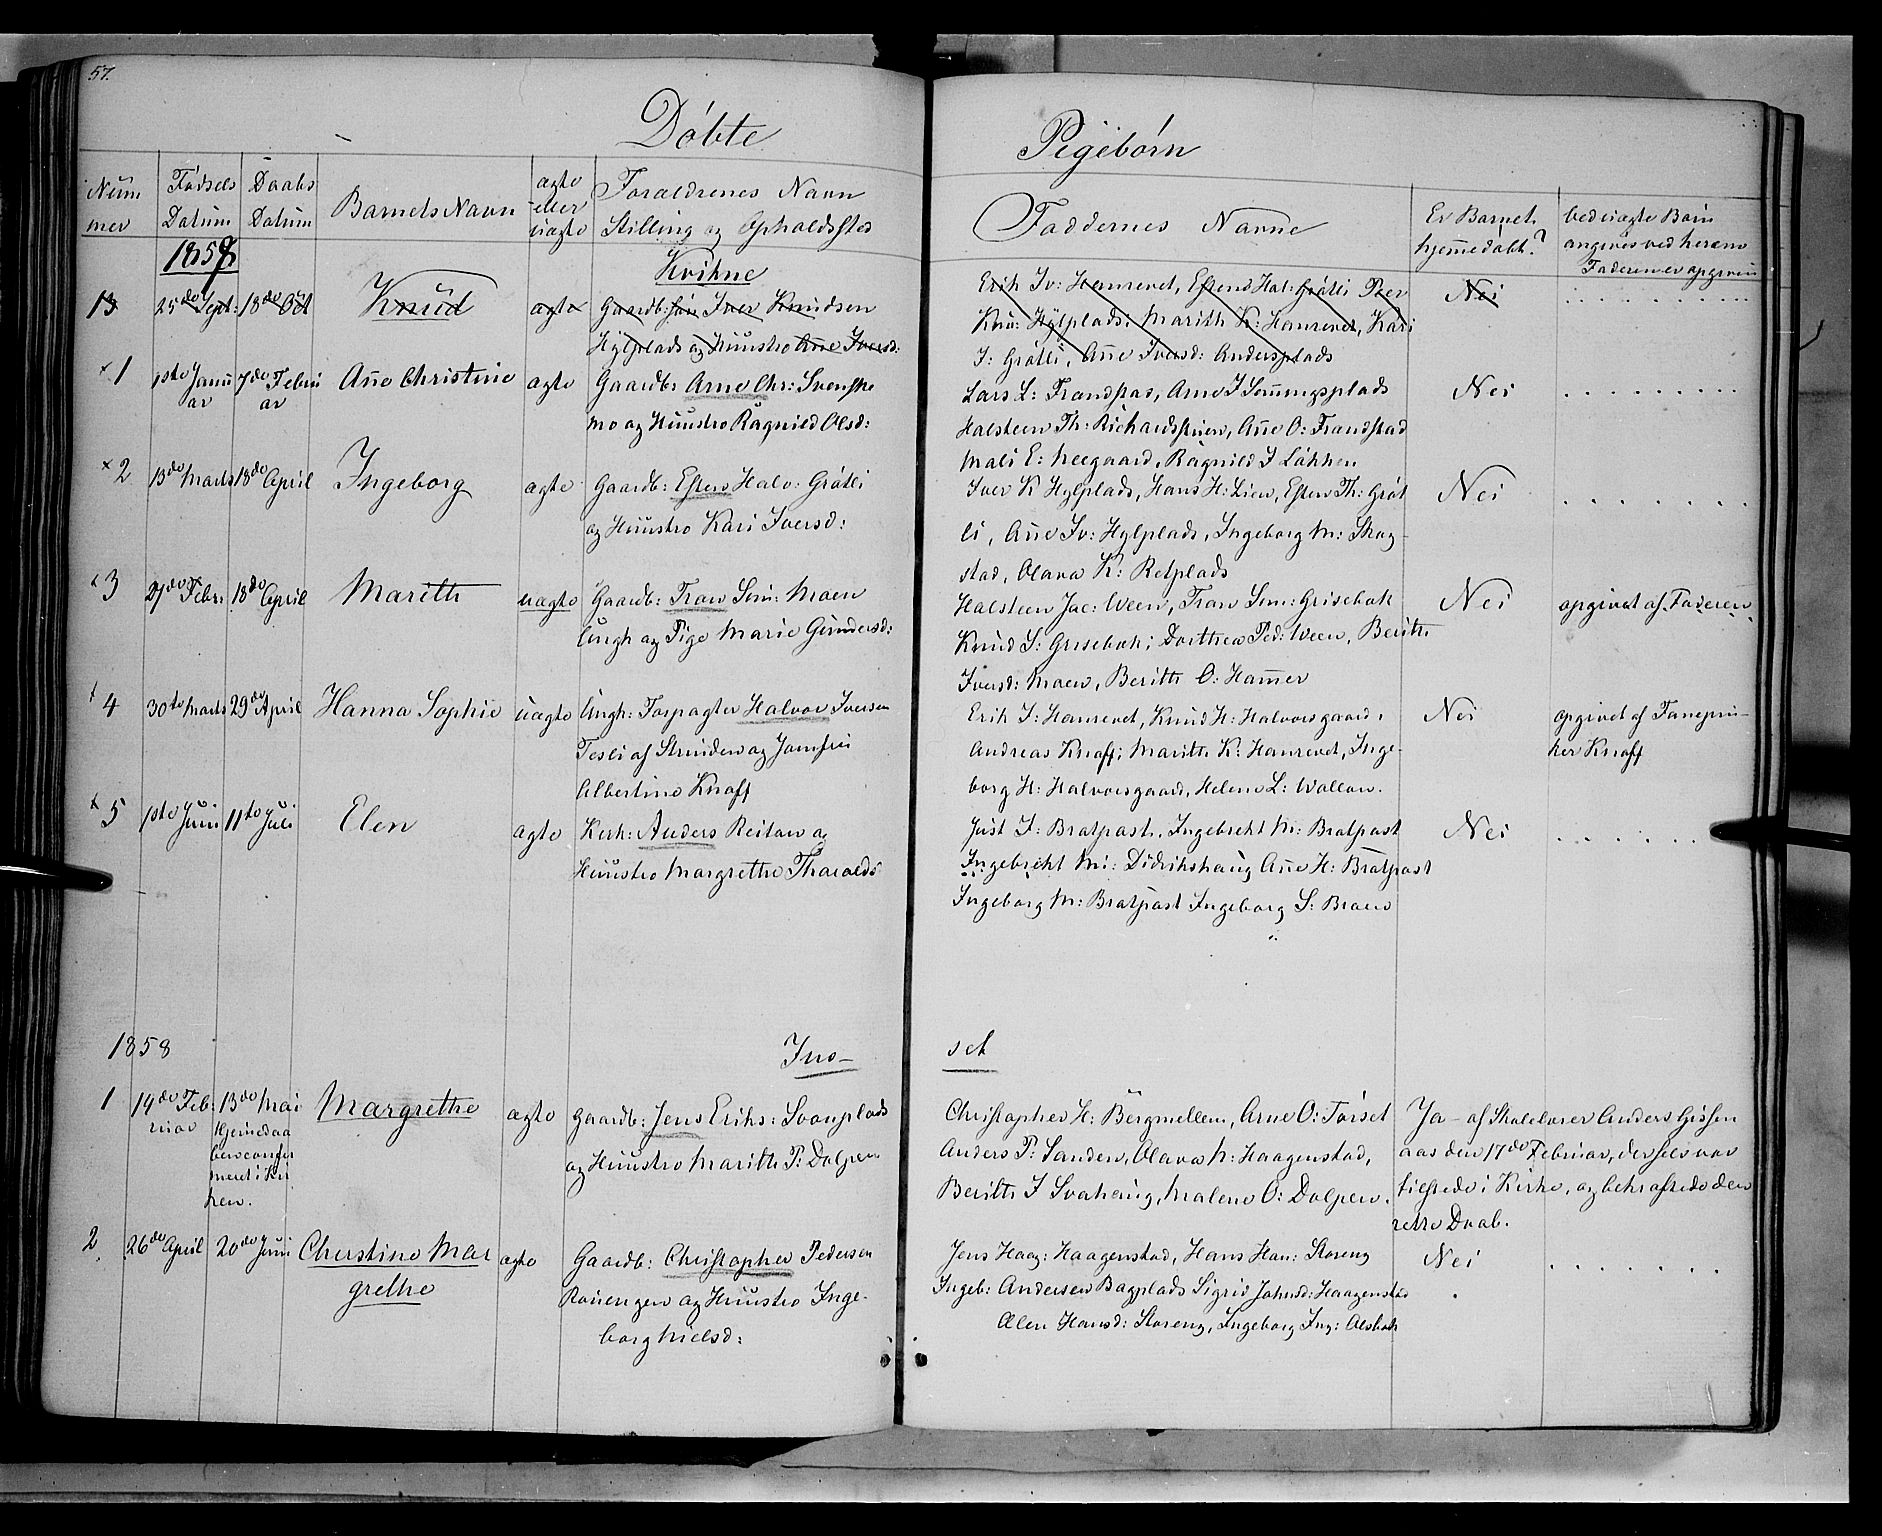 57.
Døbte Pigebørn
Num
mer
Fødsels
Datum
Daabs
Datum
Barnets Navn
ægte
eller
uægte
Forældrenes Navn
Stilling og Opholdssted
Faddernes Navne
Er Barnet
hjemmedøbt?
ved uægte Børn
angives ved hvem
Faderen er opgiven
1858
Kvikne
13 25de Sept: 18de Oct Knud ægte Gaardb: Iver Knudsen
Hylplads og Hustro Ane Iversd:
Erik Iv: Hanrevet, Esten Hal: Grøtli Peer
Knu: Hylplads, Marith K: Hanrevet, Kari
I: Grøtli, Ane Iversd: Andersplads
Nei
× 1 1ste Janu
ar
7de Febru
ar
Ane Christine ægte Gaardb: Arne Chr: Svenske
mo og Hustro Ragnild Olsd:
Lars L: Frandstad, Arne I
Halsteen Th: Richardstuen, Ane O: Frandstad
Mali E: Neegaard, Ragnild I Løkken
Nei
× 2 13de Marts 18de April Ingeborg ægte Gaardb: Esten Halv: Grøtli
og Hustro Kari Iversd:
Iver K Hylplads, Hans H: Lien, Esten Th: Grøt
li, Ane Iv: Hylplads, Ingeborg M: Skog
stad, Olava K: Retplads
Nei
× 3 27de Febr: 18de April Marith uægte Gaardb: Tron Sim: Moen
Ungk og Pige Marie Gundersd:
Halsteen Jac: Ween, Tron Sim: Grisebak
Knud S: Grisebak, Dorthea Ped: Ween, Berith
Iversd: Moen, Berith O: Hammer
Nei
opgivet af Faderen
× 4 30te Marts 29de April Hanna Sophie uægte Ungk: Forpagter Halvor Iversen
Tesli af Strinden og Jomfru
Albertine Knoff
Erik I: Hanrevet, Knud H: Halvorsgaard,
Andreas Knoff, Marith K: Hanrevet, Inge-
borg H: Halvorsgaard, Helene L: Wollan.
Nei
opgivet af Fanejun-
ker Knoff
× 5 1ste Juni 11te Juli Elen ægte Kirk: Anders Reitan og
Hustro Margrethe Tharalds
Just I: Bratpast, Ingebrekt M: Bratpast
Ingebrekt M: Didrikshaug Ane H: Bratpast
Ingeborg M: Bratpast Ingeborg S: Broen
Nei
1858
Ins-
set
1 14de Feb
ruar
13de Mai
Hjemmedaa
ben confir
meret i Kir
ken.
Margrethe ægte Gaardb: Jens Eriks: Svanplads
og Hustro Marith P: Dolpen
Christopher H: Bergmellem, Arne O: Torset
Anders P: Sanden, Olava N: Haagenstad,
Berith I Svahaug, Malene O: Dolpen.
Ja - af Skolelærer Anders Gissen
aas den 17de Februar, der selv var
tilstede i Kirke, og bekræftede den
rette Daab.
2 26de April 20de Juni Christine Mar
grethe
ægte Gaardb: Christopher Pedersen
Rønengen og Hustro Inge-
borg Nielsd:
Jens Haag: Haagenstad, Hans Han: Storeng
Ingeb: Andersen Bagplads Sigrid Johnsd: Haagenstad
Olen Hansd: Storeng, Ingeborg Ing: Olsbak
Nei